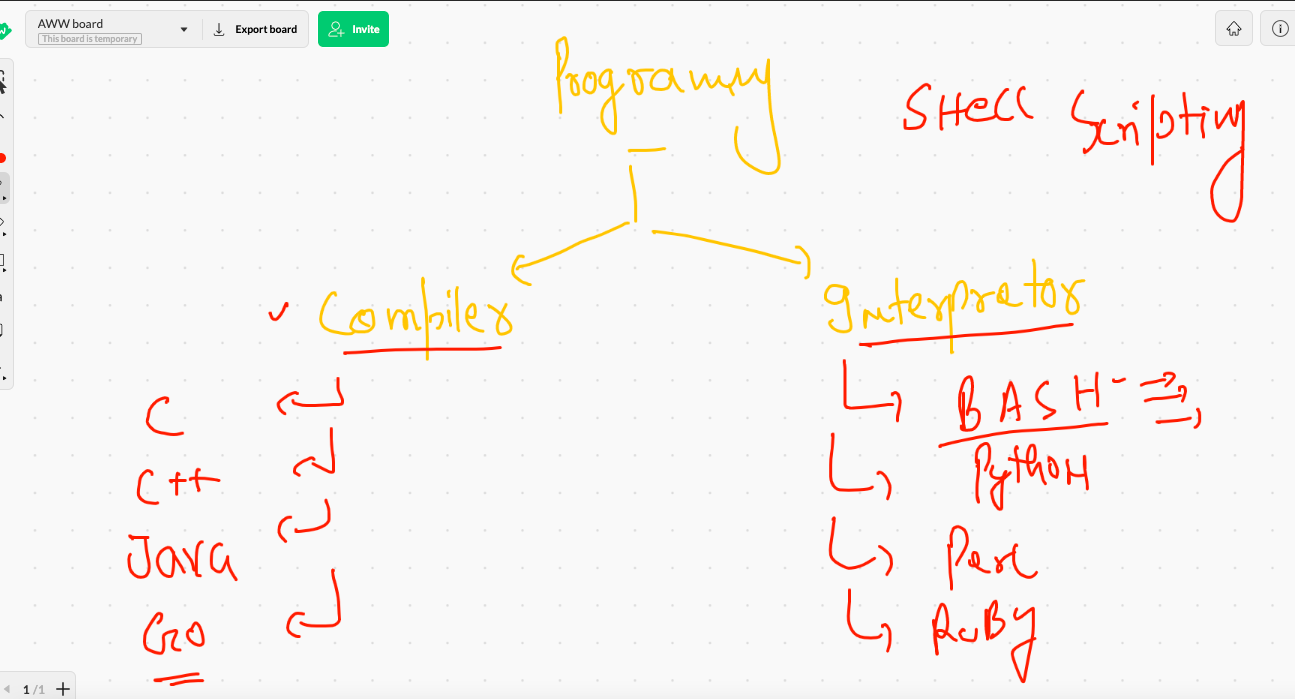 AWW board
This board is temporary
Export board
Invite
Programmy
SHell Scripting
Compiler
Interprator
C
C++
Java
Go
BASH
PythoH
Perl
RuBy
1 / 1